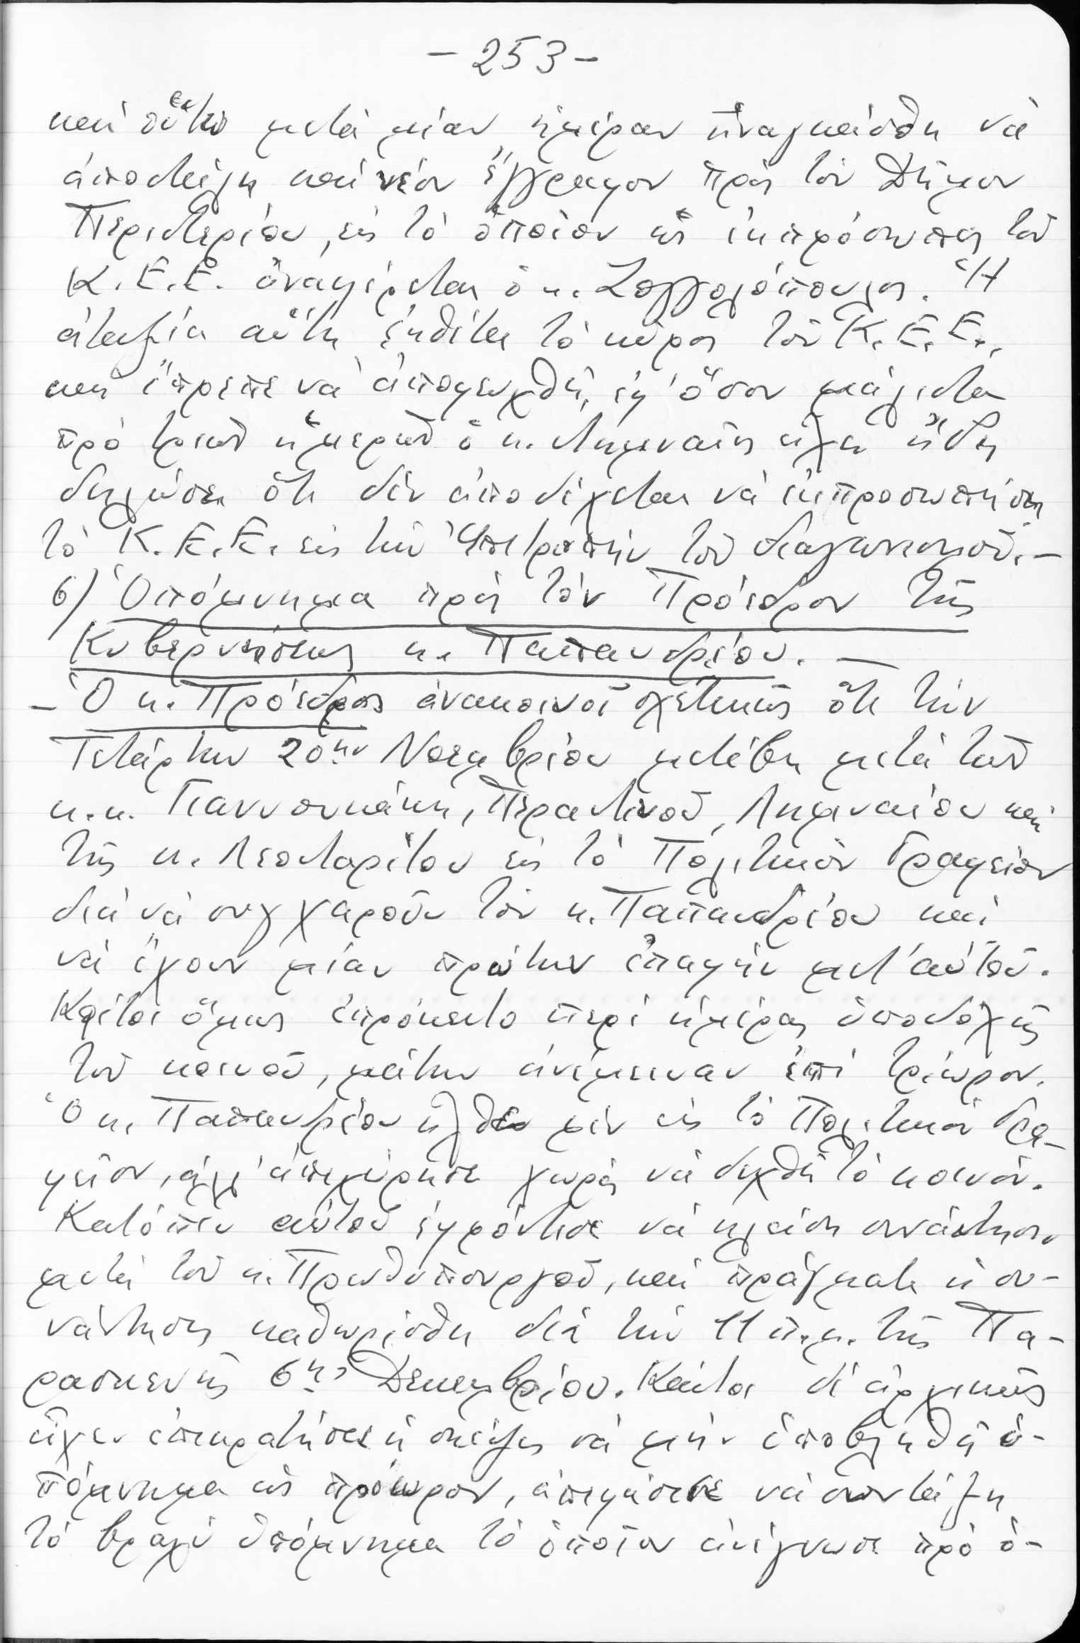 - 253 -
καί οὕτω μετά μίαν ἡμέραν ἠναγκάσθη νά
ἀποστείλη καί νέον ἔγγραφον πρός τόν Δῆμον
Περιστερίου, εἰς τό ὁποῖον ὡς ἐκπρόσωπος τοῦ
Κ.Ε.Ε. ἀναφέρεται ὁ κ. Ζογγολόπουλος. Ἡ
ἀταξία αὕτη ἐκθέτει τό κῦρος τοῦ Κ.Ε.Ε.,
καί ἔπρεπε νά ἀποφευχθῆ, ἐφ' ὅσον μάλιστα
πρό τριῶν ἡμερῶν ὁ κ. Λημναῖος εἶχε ἤδη
δηλώσει ὅτι δέν ἀποδέχεται νά ἐκπροσωπήση
τό Κ.Ε.Ε. εἰς τήν Ἐπιτροπήν τοῦ διαγωνισμοῦ.-
6) Ὑπόμνημα πρός τόν Πρόεδρον τῆς
Κυβερνήσεως κ. Παπανδρέου. —
- Ὁ κ. Πρόεδρος ἀνακοινοῖ σχετικῶς ὅτι τήν
Τετάρτην 20ήν Νοεμβρίου μετέβη μετά τῶν
κ.κ. Γιαννουκάκη, Περαντινοῦ, Λημναίου καί
τῆς κ. Λεονταρίτου εἰς τό Πολιτικόν Γραφεῖον
διά νά συγχαροῦν τόν κ. Παπανδρέου καί
νά ἔχουν μίαν πρώτην ἐπαφήν μετ' αὐτοῦ.
Καίτοι ὅμως ἐπρόκειτο περί ἡμέρας ὑποδοχῆς
τοῦ κοινοῦ, μάτην ἀνέμειναν ἐπί τρίωρον.
Ὁ κ. Παπανδρέου ἦλθεν μέν εἰς τό Πολιτικόν Γρα-
φεῖον, ἀλλ' ἀπεχώρησε χωρίς νά δεχθῆ τό κοινόν.
Κατόπιν αὐτοῦ ἐφρόντισε νά κλείση συνάντησιν
μετά τοῦ κ. Πρωθυπουργοῦ, καί πράγματι ἡ συ-
νάντησις καθωρίσθη διά τήν 11 π.μ. τῆς Πα-
ρασκευῆς 6ης Δεκεμβρίου. Καίτοι δέ ἀρχικῶς
εἶχεν ἐπικρατήσει ἡ σκέψις νά μήν ὑποβληθῆ ὑ-
πόμνημα ὡς πρόωρον, ἀπεφάσισε νά συντάξη
τό βραχύ ὑπόμνημα τό ὁποῖον ἀνέγνωσε πρό ὀ-